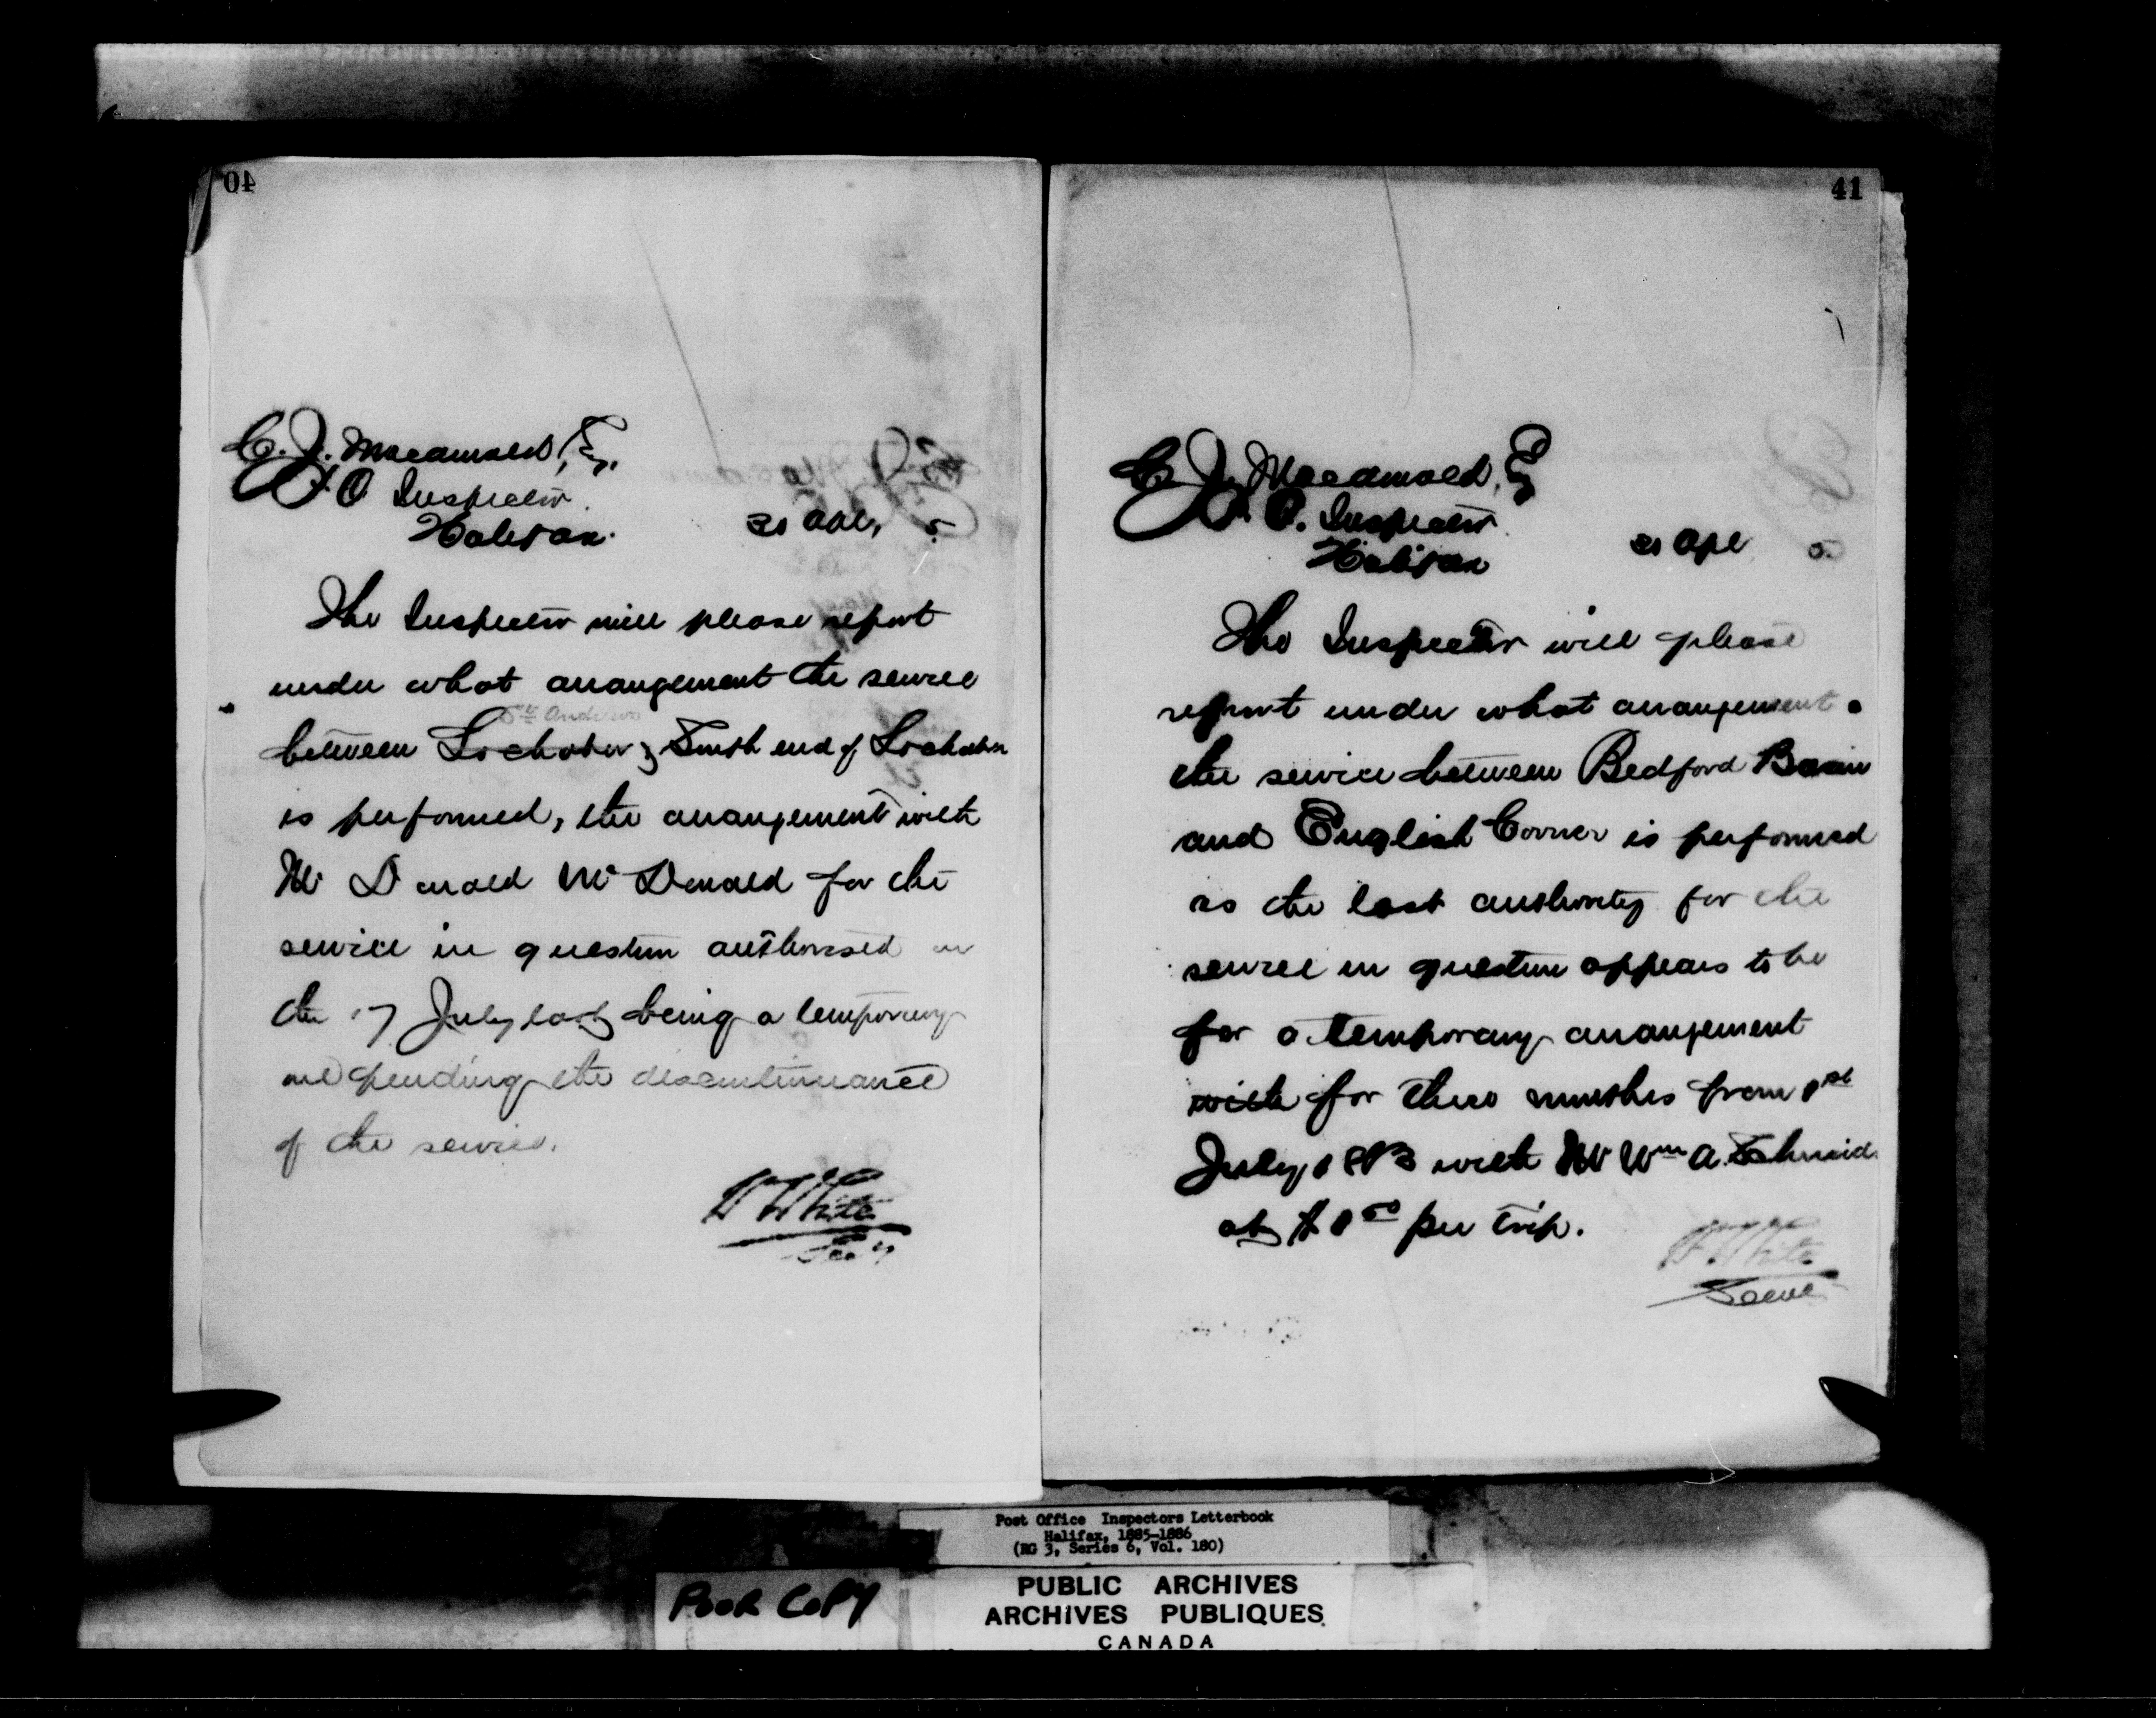 40
C. J. Macdonald, Esq,
P. O Inspector
Halifax.
21 Apl, 5.
The Inspector will please report
under what arrangement the service
St. Andrews
between Lochaber & South end of Lochaber
is performed, the arrangement with
Mr Donald McDonald for the
service in question authorised on
the 17 July last being a temporary
one pending the discontinuance
of the service.
W White
Secy
41
C. J. Macdonald, Esq
P. O. Inspector
Halifax
21 Apl 5.
The Inspector will please
report under what arrangement
the service between Bedford Basin
and English Corner is performed
as the last authority for the
service in question appears to be
for a temporary arrangement
with for three months from 1st
July 1883 with Mr Wm A. Schmid
at $1 00 per trip.
W. White
Secy
Post Office Inspectors Letterbook
Halifax, 1885-1886
(RG 3, Series 6, Vol. 180)
POOR COPY
PUBLIC ARCHIVES
ARCHIVES PUBLIQUES
CANADA